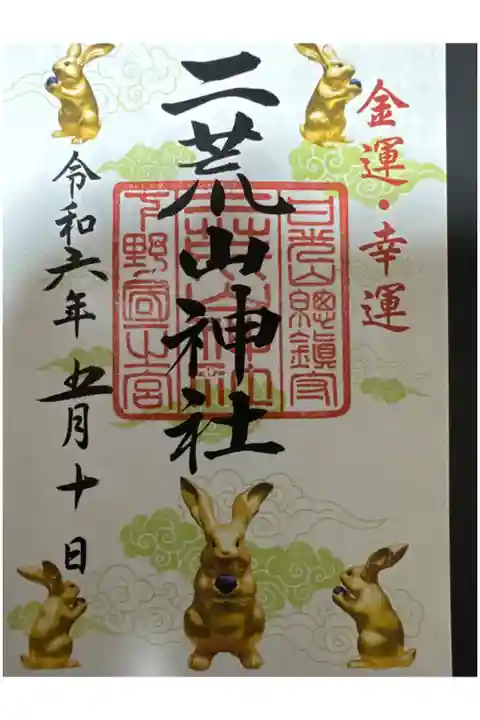 金運・幸運
二荒山神社
日光山總鎮守
二荒山神社
下野國一之宮
令和六年五月十日